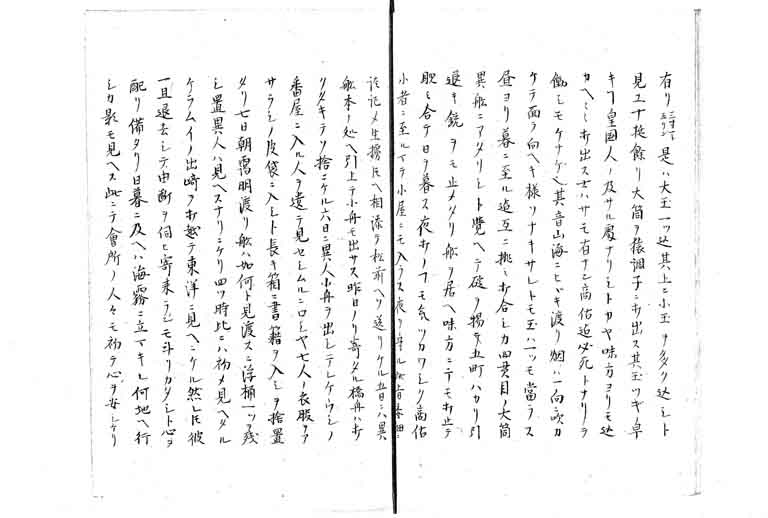 有リ 是ハ大玉一ツ込其上ニ小玉ヲ多ク込シト
見ユ十挺餘リ大筒ヲ猿調子ニ打出ス其玉ツギノ早
キヿ皇國人ノ及サル處ナリシトカヤ味方ヨリモ込
カヘ打出スニハサモ有ナシ高佑迫必死トナリテ
働シモケナゲ其音山海ニヒビキ渡リ烟ハ一向吹カ
ケテ面ヲ向ヘキ様ソナキサレトモ玉ハ一ツモ當ラス
昼ヨリ暮ニ至ル迫互ニ挑ミ打合シカ四貫目ノ大筒
異舩ニアタリシト覺ヘテ破ノ揚テ五町ハカリ引
退キ鏡ヲモ止メタリ舩ヲ居ヘ味方ニテモ打止テ
眼ヲ合テ日ヲ暮ス夜打ノヿモ気ツカワシク高佑
小者ニ至ルマテ小屋ニモ入ラス夜ヲ
記メ生捕氏ヘ相添テ松前ヘソ送リケル五日ニハ異
舩本ノ処ヘ引上テ小舟モ出サス昨日ノリ寄タル橋舟ハ打
リクタキテソ捨ニケル六日ニ異人小舟ヲ出シテレケウシノ
番屋ニ入ル人ヲ遣テ見セシムルニロシヤ七人ノ衣服ヲア
サラシノ皮袋ニ入シト長キ箱ニ書籍ヲ入シヲ捨置
タリ七日朝霧明渡リ舩ハ如何ト見渡スニ浮桶一ツヲ残
シ置異人ハ見ヘスナリニケリ四ツ時比ニハ初メ見ヘタル
ケラムイノ出崎ヲ打越テ東洋ニ見ヘニケル然レ氏彼
一旦退去シテ由断ヲ伺ヒ寄来ランモ斗リカタシト心ヲ
配リ備タリ日暮ニ及ヘハ海霧ニ立マキレ何地ヘ行
シカ影モ見ヘス此ニテ會所ノ人々モ初テ心ヲ安シケリ